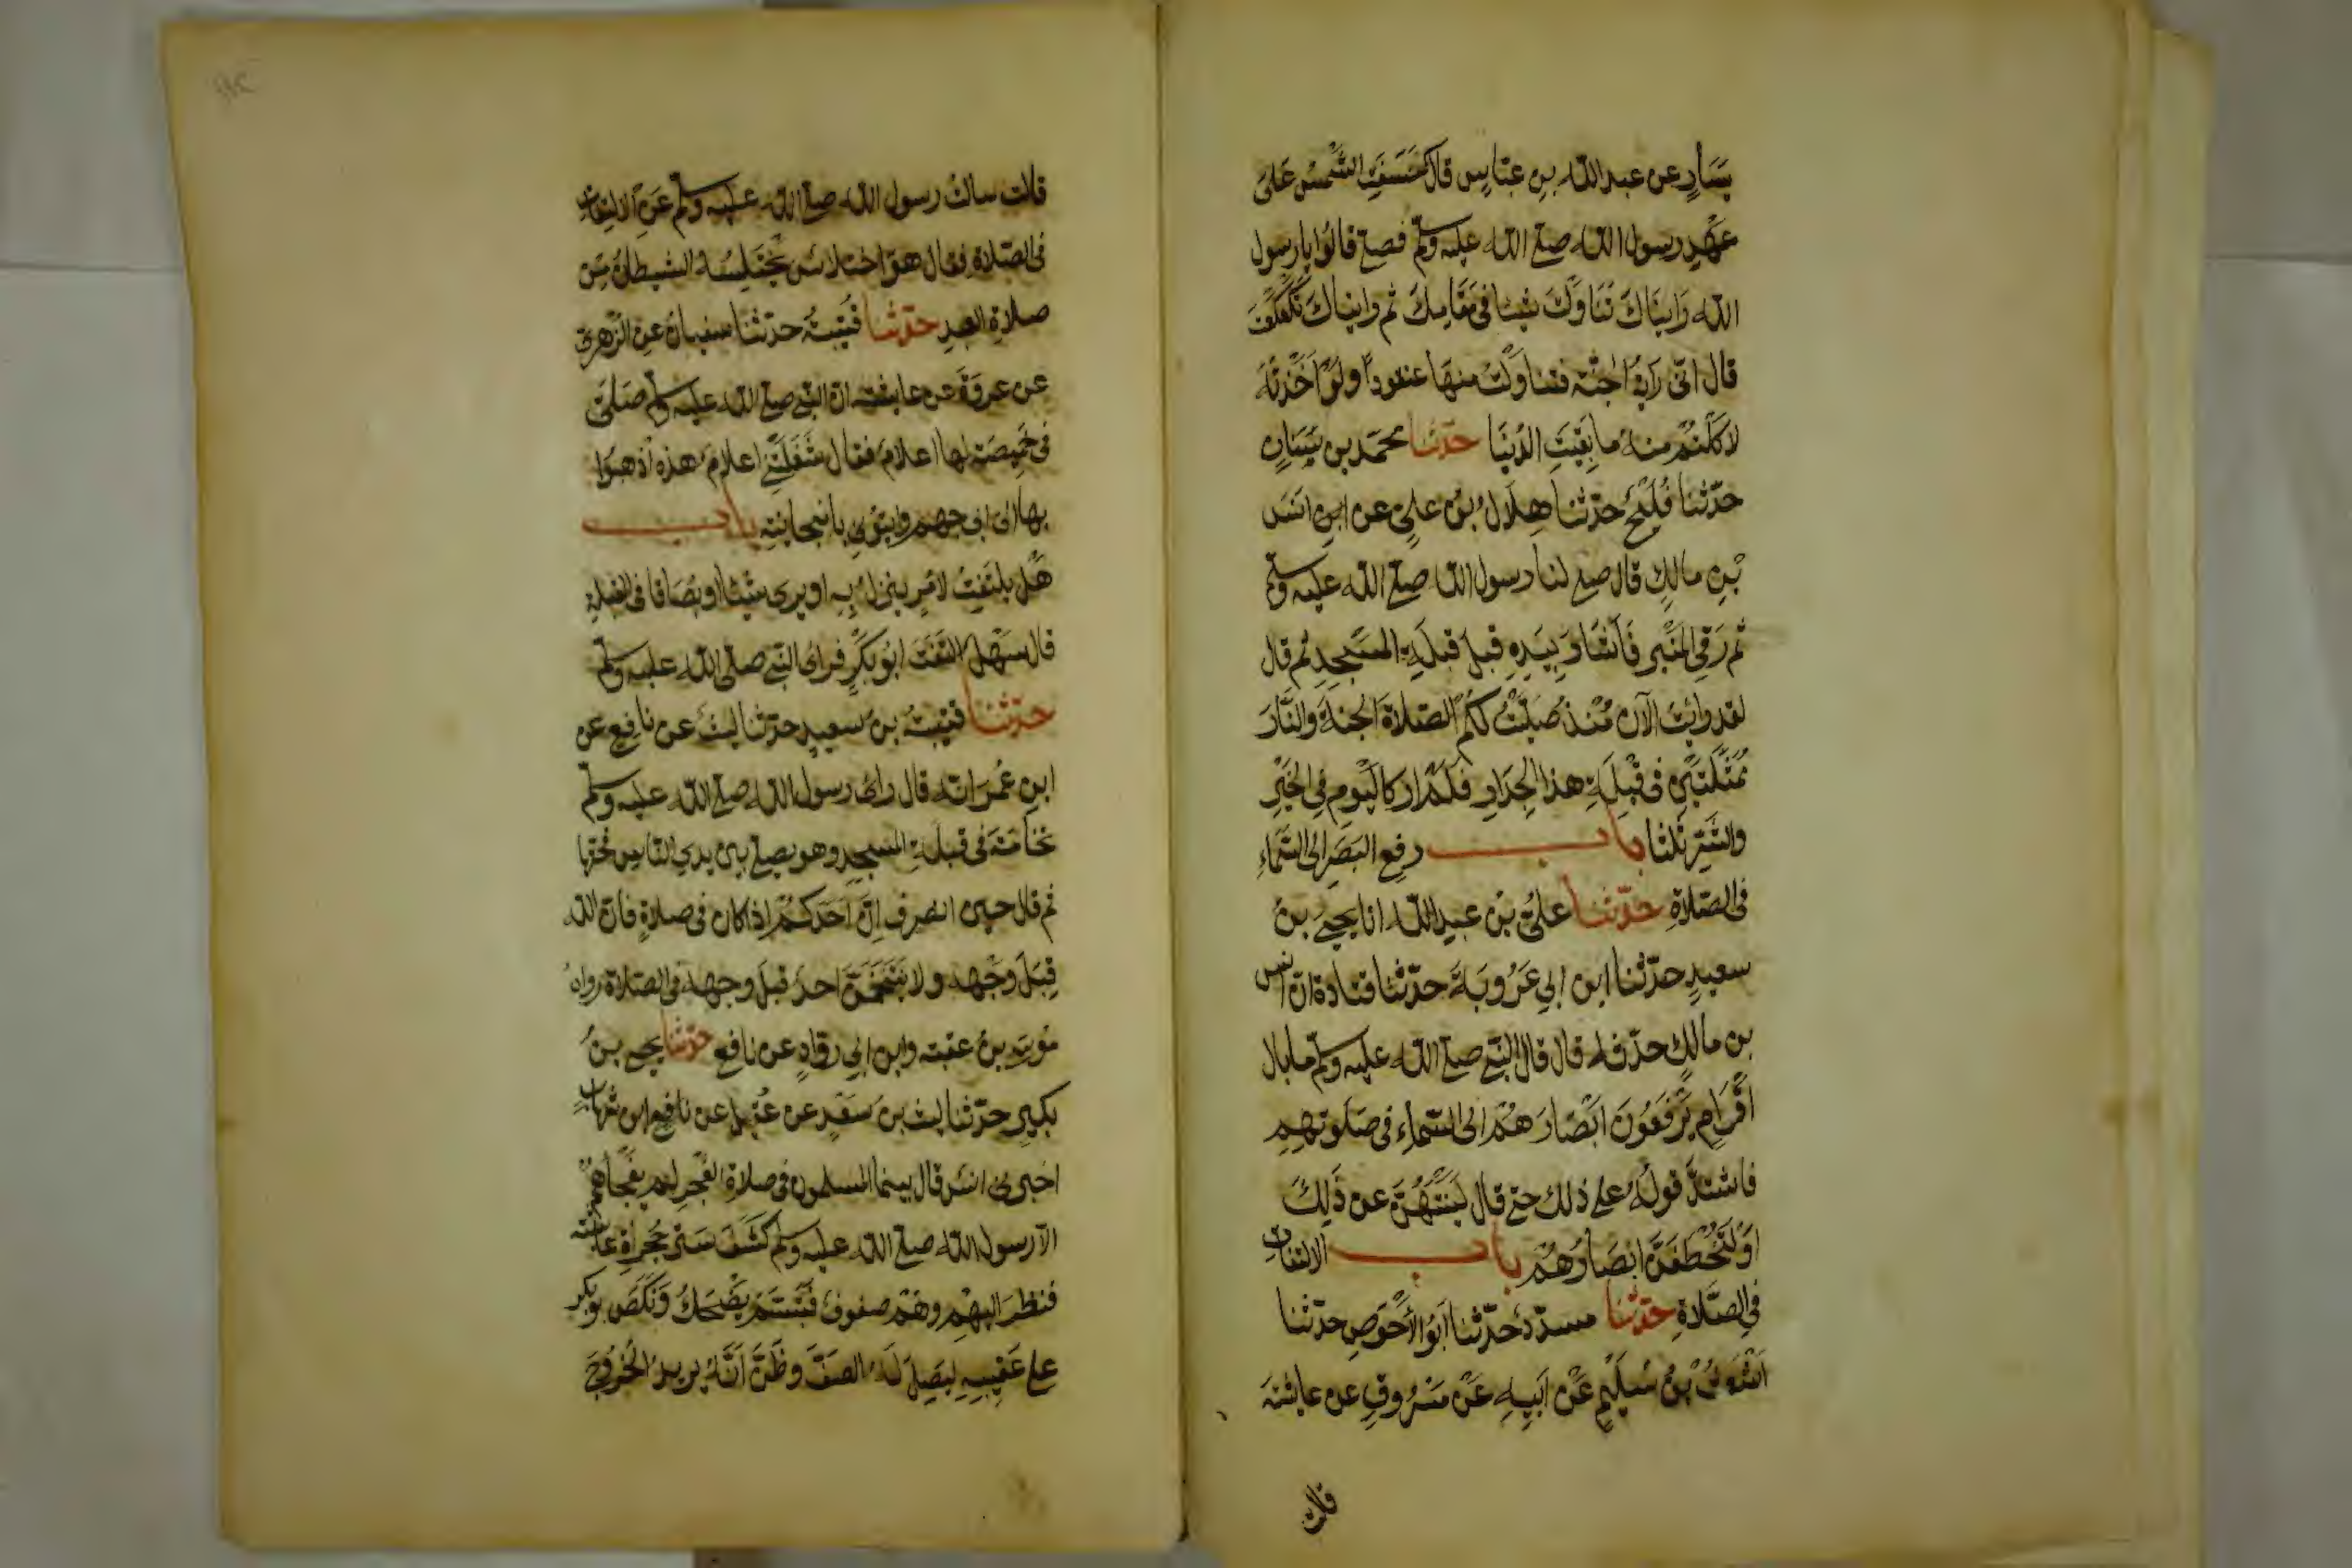 يَسَارٍ عن عبد الله بنِ عبّاسٍ قال خَسَفَتِ الشَّمْسُ عَلىَ
عَهْدِ رسول الله صلى الله عليه وسلم فصلى قالُوا يا رسول
الله رَايناكَ تناوَلتَ شيئا فى مَقَامِكَ ثم رايناك تكَعْكَعْتَ
قال انّى رَايتُ الجنّة فتناوَلْتُ منهَا عنقودًا ولَوْ اَخَذْتُهُ
لاكَلْتُمْ منهُ ما بَقِيَتِ الدُّنيَا حدّثنا محمد بن سِنَانٍ
حدّثنا فُلَيْحٌ حدّثنا هِلَالُ بنُ عليّ عن انس
بْنِ مالِكٍ قال صلى لنا رسول الله صلى الله عليه وسلم
ثم رَقِىَ المنْبر فَاشَارَ بِيَدِهِ قِبَلَ قبلةِ المسجِدِ ثم قال
لقد رايت الآن مُنْذُ صَلّيْتُ لكُم الصّلاةَ الجنةَ والنَّارَ
مُمَثَّلَتَيْنِ فى قِبْلَةِ هذا الجِدَارِ فَلَمْ اَرَ كاليَومِ فِى الخَيْرِ
والشّرِّ ثلثا باب رفعِ البَصَرِ الى السَّمَاءِ
فى الصّلاةِ حدّثنا علىُّ بنُ عبدِ الله انا يحيى بنُ
سعيدٍ حدّثنا ابن ابي عَرُوبَةَ حدّثنا قتادةُ انّ انس
بن مالكٍ حدّثهُ قال قال النّبى صلى الله عليه وسلم ما بال
اقْوَامٍ يَرْفَعُونَ ابْصَارَهُمْ الى السّماءِ فى صَلَوتهِمِ
فاشتدَّ قولُهُ على ذلك حتى قال لَيَنْتَهُنَّ عن ذَلِكَ
اَوْ لَتُخْطَفَنَّ ابصَارُهُمْ باب الالتفات
فِى الصَّلاةِ حدّثنا مسدّدٌ حَدّثنا اَبُو الأَحْوَصِ حدّثنا
اَشْعَثُ بْنُ سُلَيْمٍ عَنْ اَبِيهِ عَنْ مَسْرُوقٍ عن عائشةَ
قالت
قالت سالتُ رسول الله صلى الله عليه وسلم عَنِ الالتِفاتِ
فى الصّلاةِ فقال هوَ اختلاسٌ يَخْتَلِسُهُ الشيطانُ مِن
صلاةِ العبدِ حدّثنا قُتَيبَةُ حدّثنا سفيانُ عنِ الزّهرىّ
عن عروَةَ عن عايشة انّ النّبى صلى الله عليه وسلم صَلىّ
فى خَمِيصَةٍ لها اعلامٌ فقال شَغَلَتْنِى اعلامُ هذه اذهبوا
بها الى ابى جهمٍ وايتُونى بانبجانيّةٍ باب
هَلْ يلتَفِتُ لامْرٍ ينزلُ بِه او يرى شيئا او بُصَاقا فى القبلة
قال سَهْلٌ التَفَتَ ابُو بَكْرٍ فراى النّبى صلى الله عليه وسلم
حدّثنا قتيبةُ بنُ سعيدٍ حدّثنا ليث عن نافِعٍ عن
ابنِ عُمَرَ انّه قال راى رسول الله صلى الله عليه وسلم
نخامَةً فى قبلَةِ المسجدِ وهو يصلى بينَ يدىِ النّاسِ فحَتّها
ثم قال حين انصرف اِنّ اَحَدَكُمْ اِذا كان فى صلاةٍ فانّ الله
قِبَلَ وَجْهِهِ ولا يَتَنَخَّمَنَّ احدٌ قِبَلَ وجهِهِ فى الصّلاة رواهُ
مُوسَى بنُ عقبة وابن ابي روّادٍ عن نافعٍ حدّثنا يحيى بنُ
بكيرٍ حدّثنا ليث بن سَعْدٍ عن عُقيلٍ عن نافع ابن شهابٍ
اخبرنى انسٌ قال بينما المسلمون فى صلاةِ الفجرِ لم يَفْجَأْهُمْ
الاّ رسول الله صلى الله عليه وسلم كَشَفَ سترَ حُجرةِ عائشة
فنظر اليهِمْ وهُمْ صفوفٌ فتَبَسّمَ يَضْحَكُ وَنَكَصَ بو بكر
على عَقِبَيهِ ليَصِلَ لَهُ الصَفَّ وظَنَّ اَنَّهُ يريدُ الخُرُوجَ